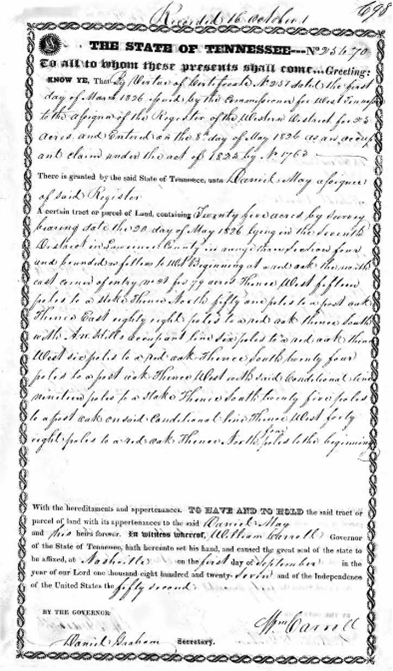 Recorded 16 October 1
698
THE STATE OF TENNESSEE---No 25470
To all to whom these presents shall come...Greeting:
KNOW YE, That By Virtue of Certificate No 237 dated the first
day of March 1826 issued by the Commissioner for West Tennessee
to the assignee of the Register of the Western District for 25
acres and Entered on the 8th day of May 1826 as an occup
ant claim under the act of 1825 by No 1763
There is granted by the said State of Tennessee, unto Daniel May assignee
of said Register
A certain tract or parcel of Land, containing Twenty five acres by survey
bearing date the 20 day of May 1826 lying in the Seventh
District in Lawrence County in range three Section four
and bounded as follows to Wit Beginning at a red oak the north
east corner of entry for 79 acres Thence West fifteen
poles to a Stake Thence North fifty one poles to a post oak
Thence East eighty eight poles to a red oak thence South
with occupant line six poles to a red oak thence
West six poles to a red oak Thence South twenty four
poles to a post oak Thence West with said Conditional line
nineteen poles to a stake Thence South twenty five poles
to a post oak on said Conditional line Thence West forty
eight poles to a red oak Thence North poles to the beginning
With the hereditaments and appertenances. TO HAVE AND TO HOLD the said tract or
parcel of land with its appertenances to the said Daniel May
and his heirs forever. In witness whereof, William Carroll Governor
of the State of Tennessee, hath hereunto set his hand, and caused the great seal of the state to
be affixed, at Nashville on the first day of September in the
year of our Lord one thousand eight hundred and twenty-seven and of the Independence
of the United States the fifty second
BY THE GOVERNOR
Wm Carroll
Daniel Graham Secretary.